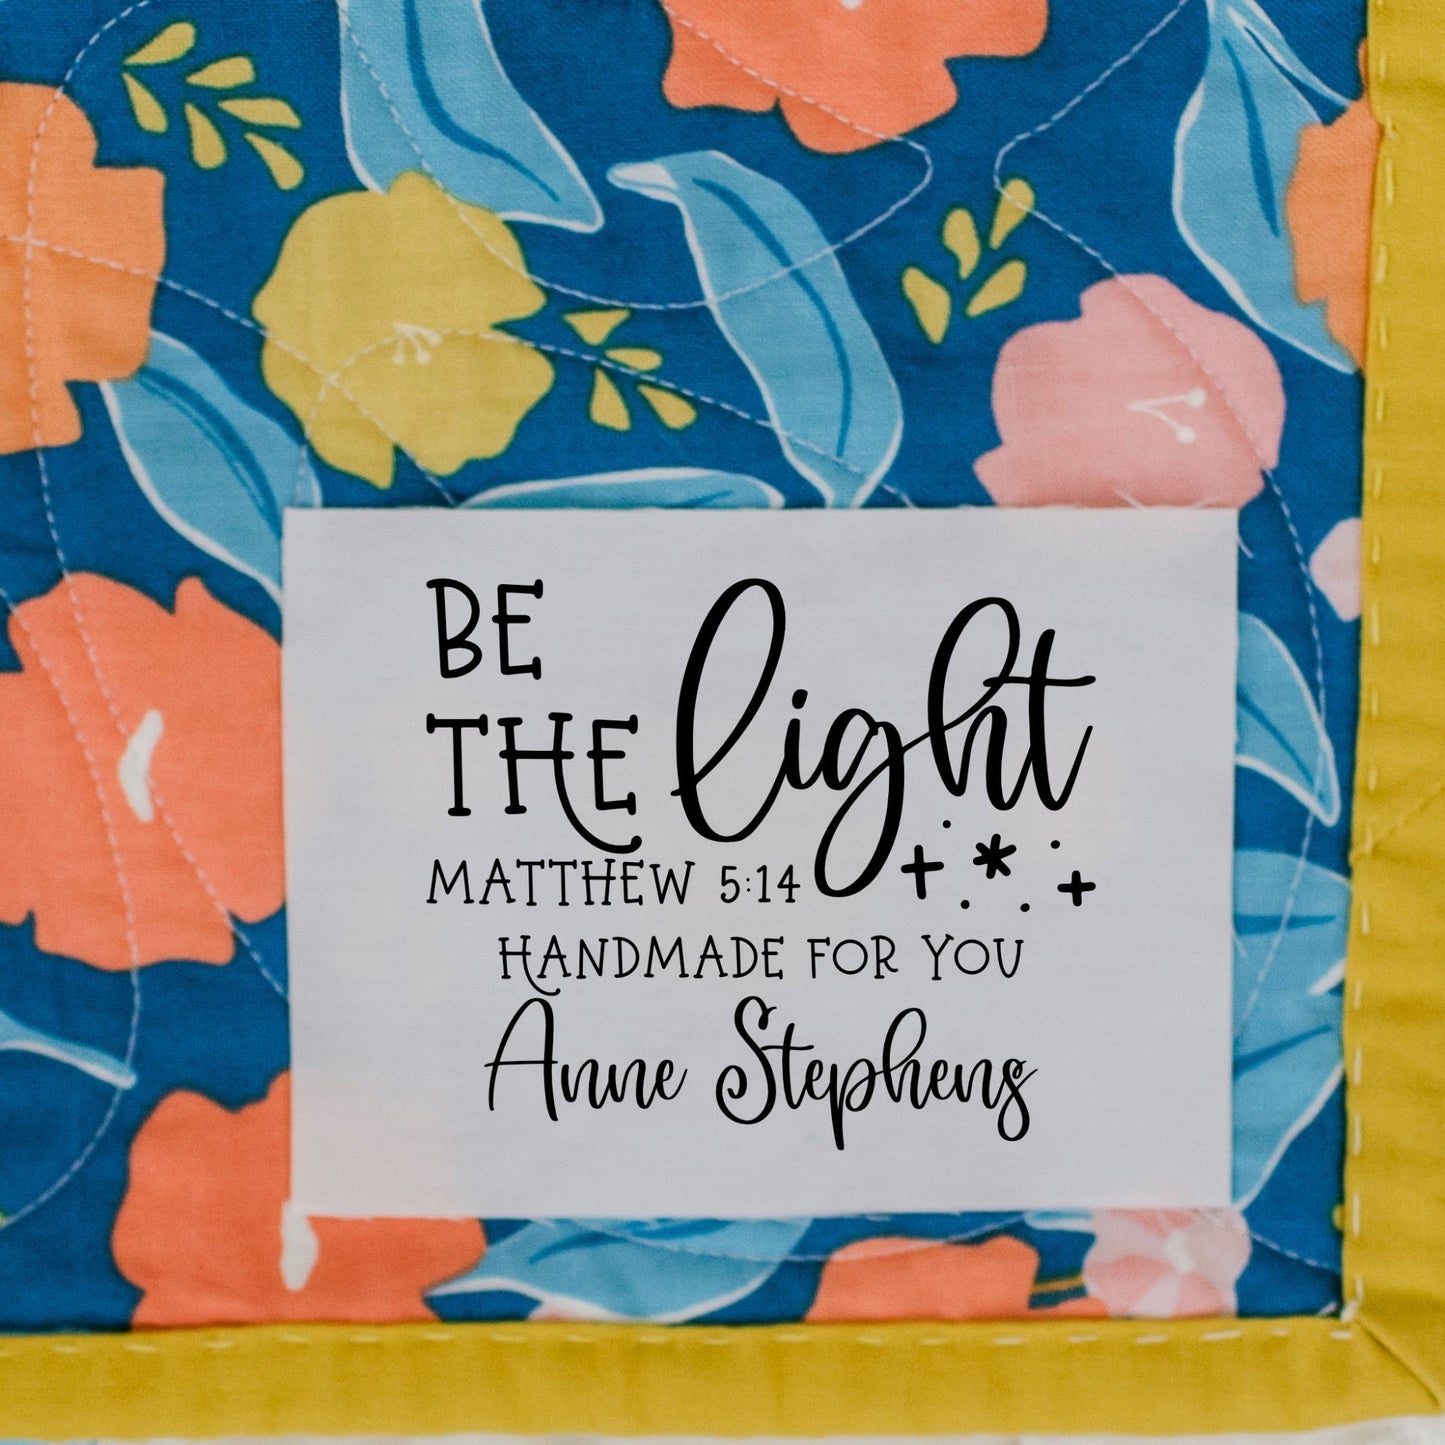 BE
THE light
MATTHEW 5:14
HANDMADE FOR YOU
Anne Stephens